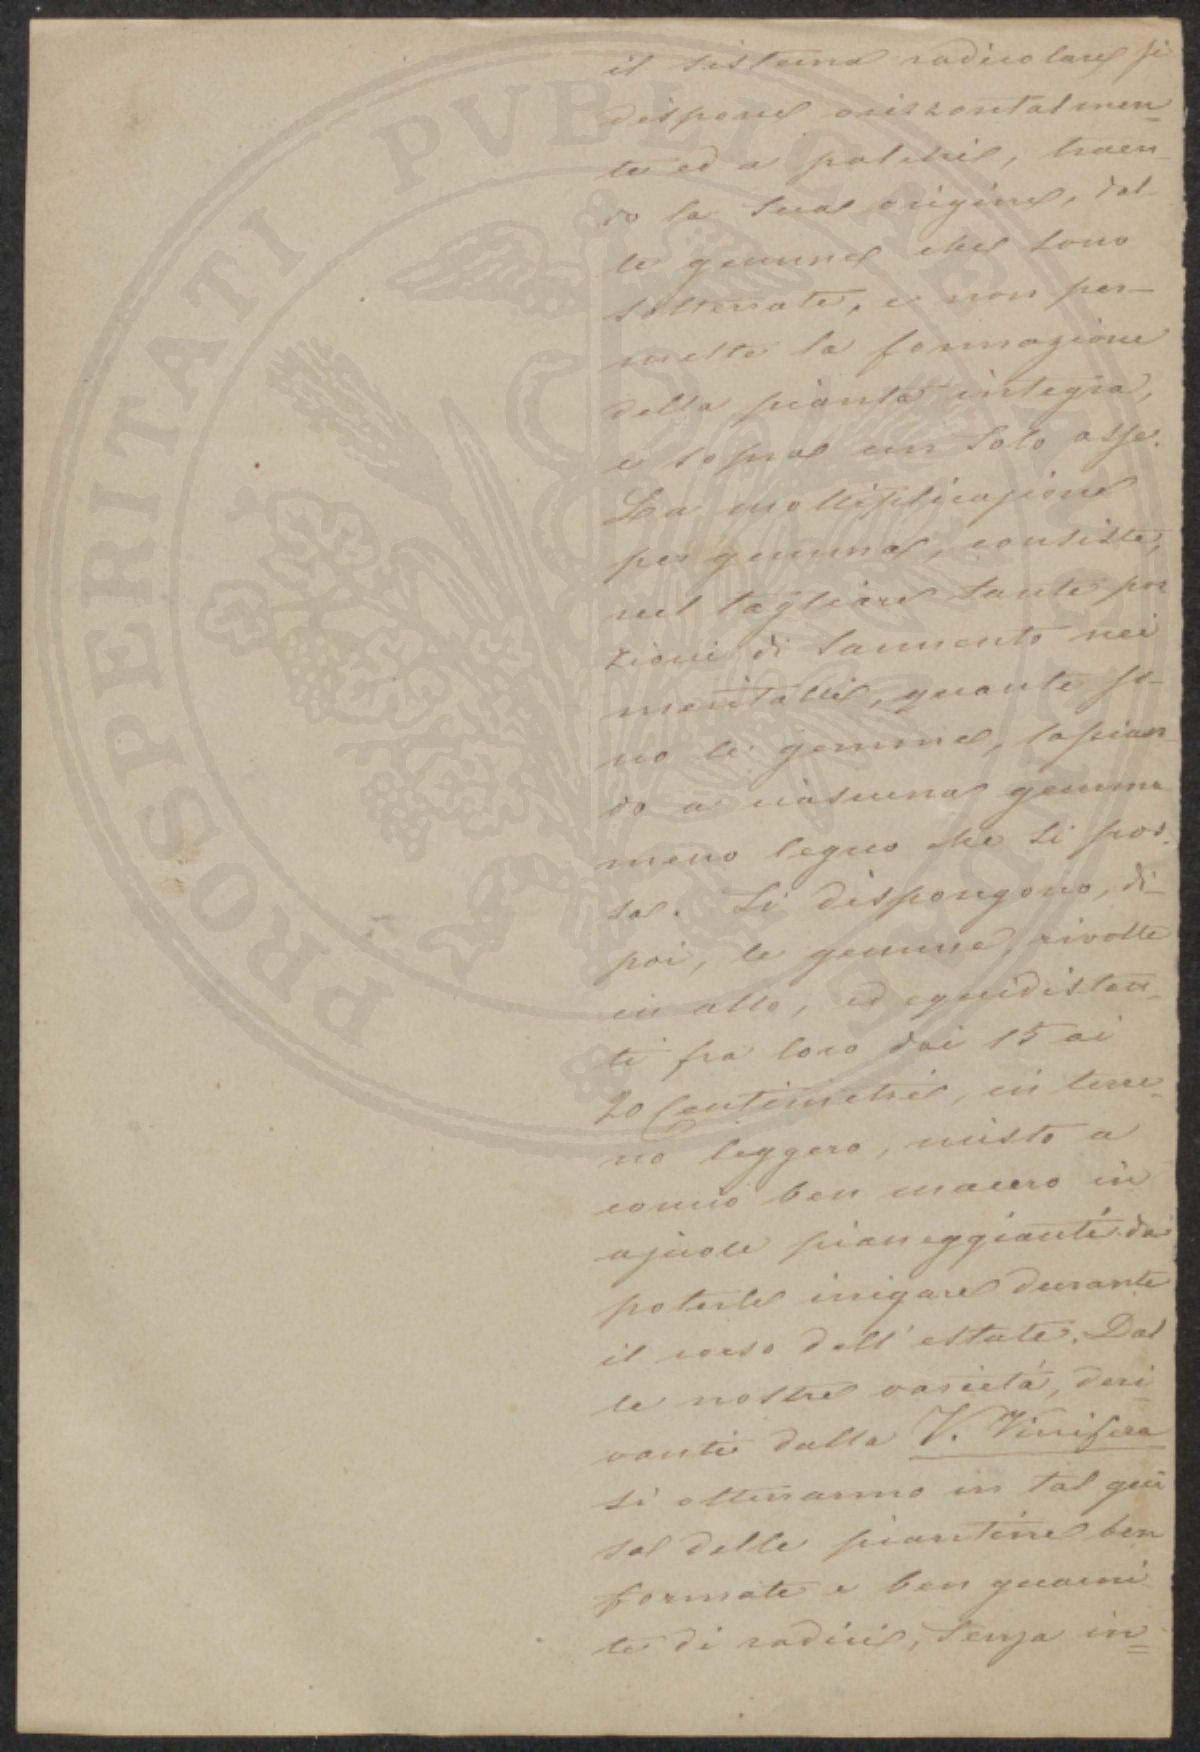 il sistema radicolare si
dispone orizzontalmen=
te ed a palchi, traen-
do la sua origine, dal-
le gemme che sono
sotterrate, e non per-
mette la formazione
della pianta integra,
e sopra un solo asse.
La moltiplicazione
per gemma, consiste,
nel tagliare tante por
zioni di sarmento nei
meritalli, quante so-
no le gemme, lascian
do a ciascuna gemma
meno legno che si pos-
sa. Si dispongono, di-
poi, le gemme, rivolte
in alto, ed equidistan-
ti fra loro dai 15 ai
20 Centimetri, in terre-
no leggero, misto a
concio ben macero in
ajuole pianeggianti da
poterle irrigare durante
il corso dell'estate. Dal
le nostre varietà, deri
vanti dalla V. Vinifera
si otteranno in tal gui
sa delle piantine ben
formate e ben guarni
te di radici, senza in=
PROSPERITATI PVBLICAE